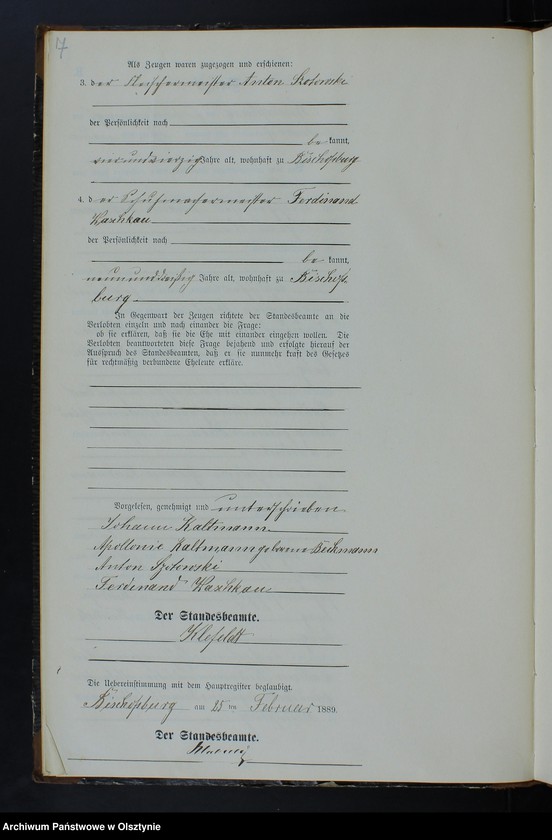 7
Als Zeugen waren zugezogen und erschienen:
3. der Fleischermeister Anton Szotowski
der Persönlichkeit nach
be kannt,
vierundvierzig Jahre alt, wohnhaft zu Bischofsburg
4. der Schuhmachermeister Ferdinand
Kaschkau
der Persönlichkeit nach
be kannt,
neununddreißig Jahre alt, wohnhaft zu Bischofs
burg
In Gegenwart der Zeugen richtete der Standesbeamte an die
Verlobten einzeln und nach einander die Frage:
ob sie erklären, daß sie die Ehe mit einander eingehen wollen. Die
Verlobten beantworteten diese Frage bejahend und erfolgte hierauf der
Ausspruch des Standesbeamten, daß er sie nunmehr kraft des Gesetzes
für rechtmäßig verbundene Eheleute erkläre.
Vorgelesen, genehmigt und unterschrieben
Johann Kaltmann
Apollonie Kaltmann geborene Bickmann
Anton Szotowski
Ferdinand Kaschkau
Der Standesbeamte.
Klefeldt
Die Uebereinstimmung mit dem Hauptregister beglaubigt.
Bischofsburg am 25 ten Februar 1889.
Der Standesbeamte.
Archiwum Państwowe w Olsztynie